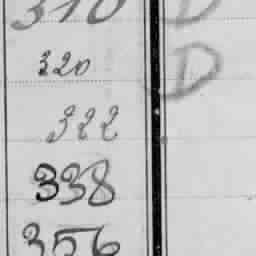 310 D
320 D
322
338
356